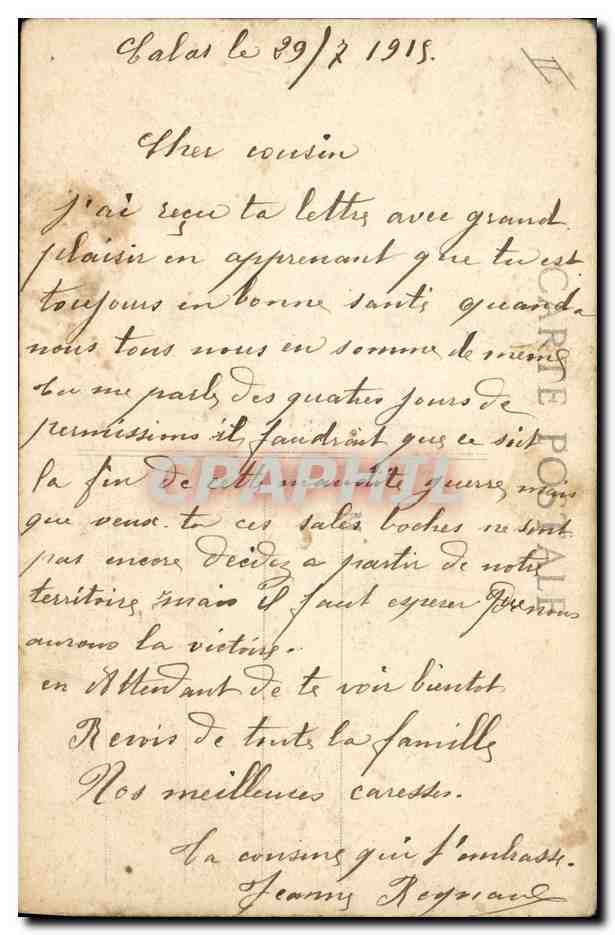 Calas le 29/7 1915.
II
Cher cousin
J'ai reçu ta lettre avec grand
plaisir en apprenant que tu est
toujours en bonne santé quand a
nous tous nous en somme de meme
tu me parle des quatres jours de
permissions il faudrait que ce soit
la fin de cette maudite guerre mais
que veux-tu ces sales boches ne sont
pas encore décidez a partir de notre
territoire mais il faut esperer que nous
aurons la victoire.
en Attendant de te voir bientot
Recois de toute la famille
Nos meilleures caresses.
Ta cousine qui t'embrasse.
Jeanne
CARTE POSTALE
CPAPHIL